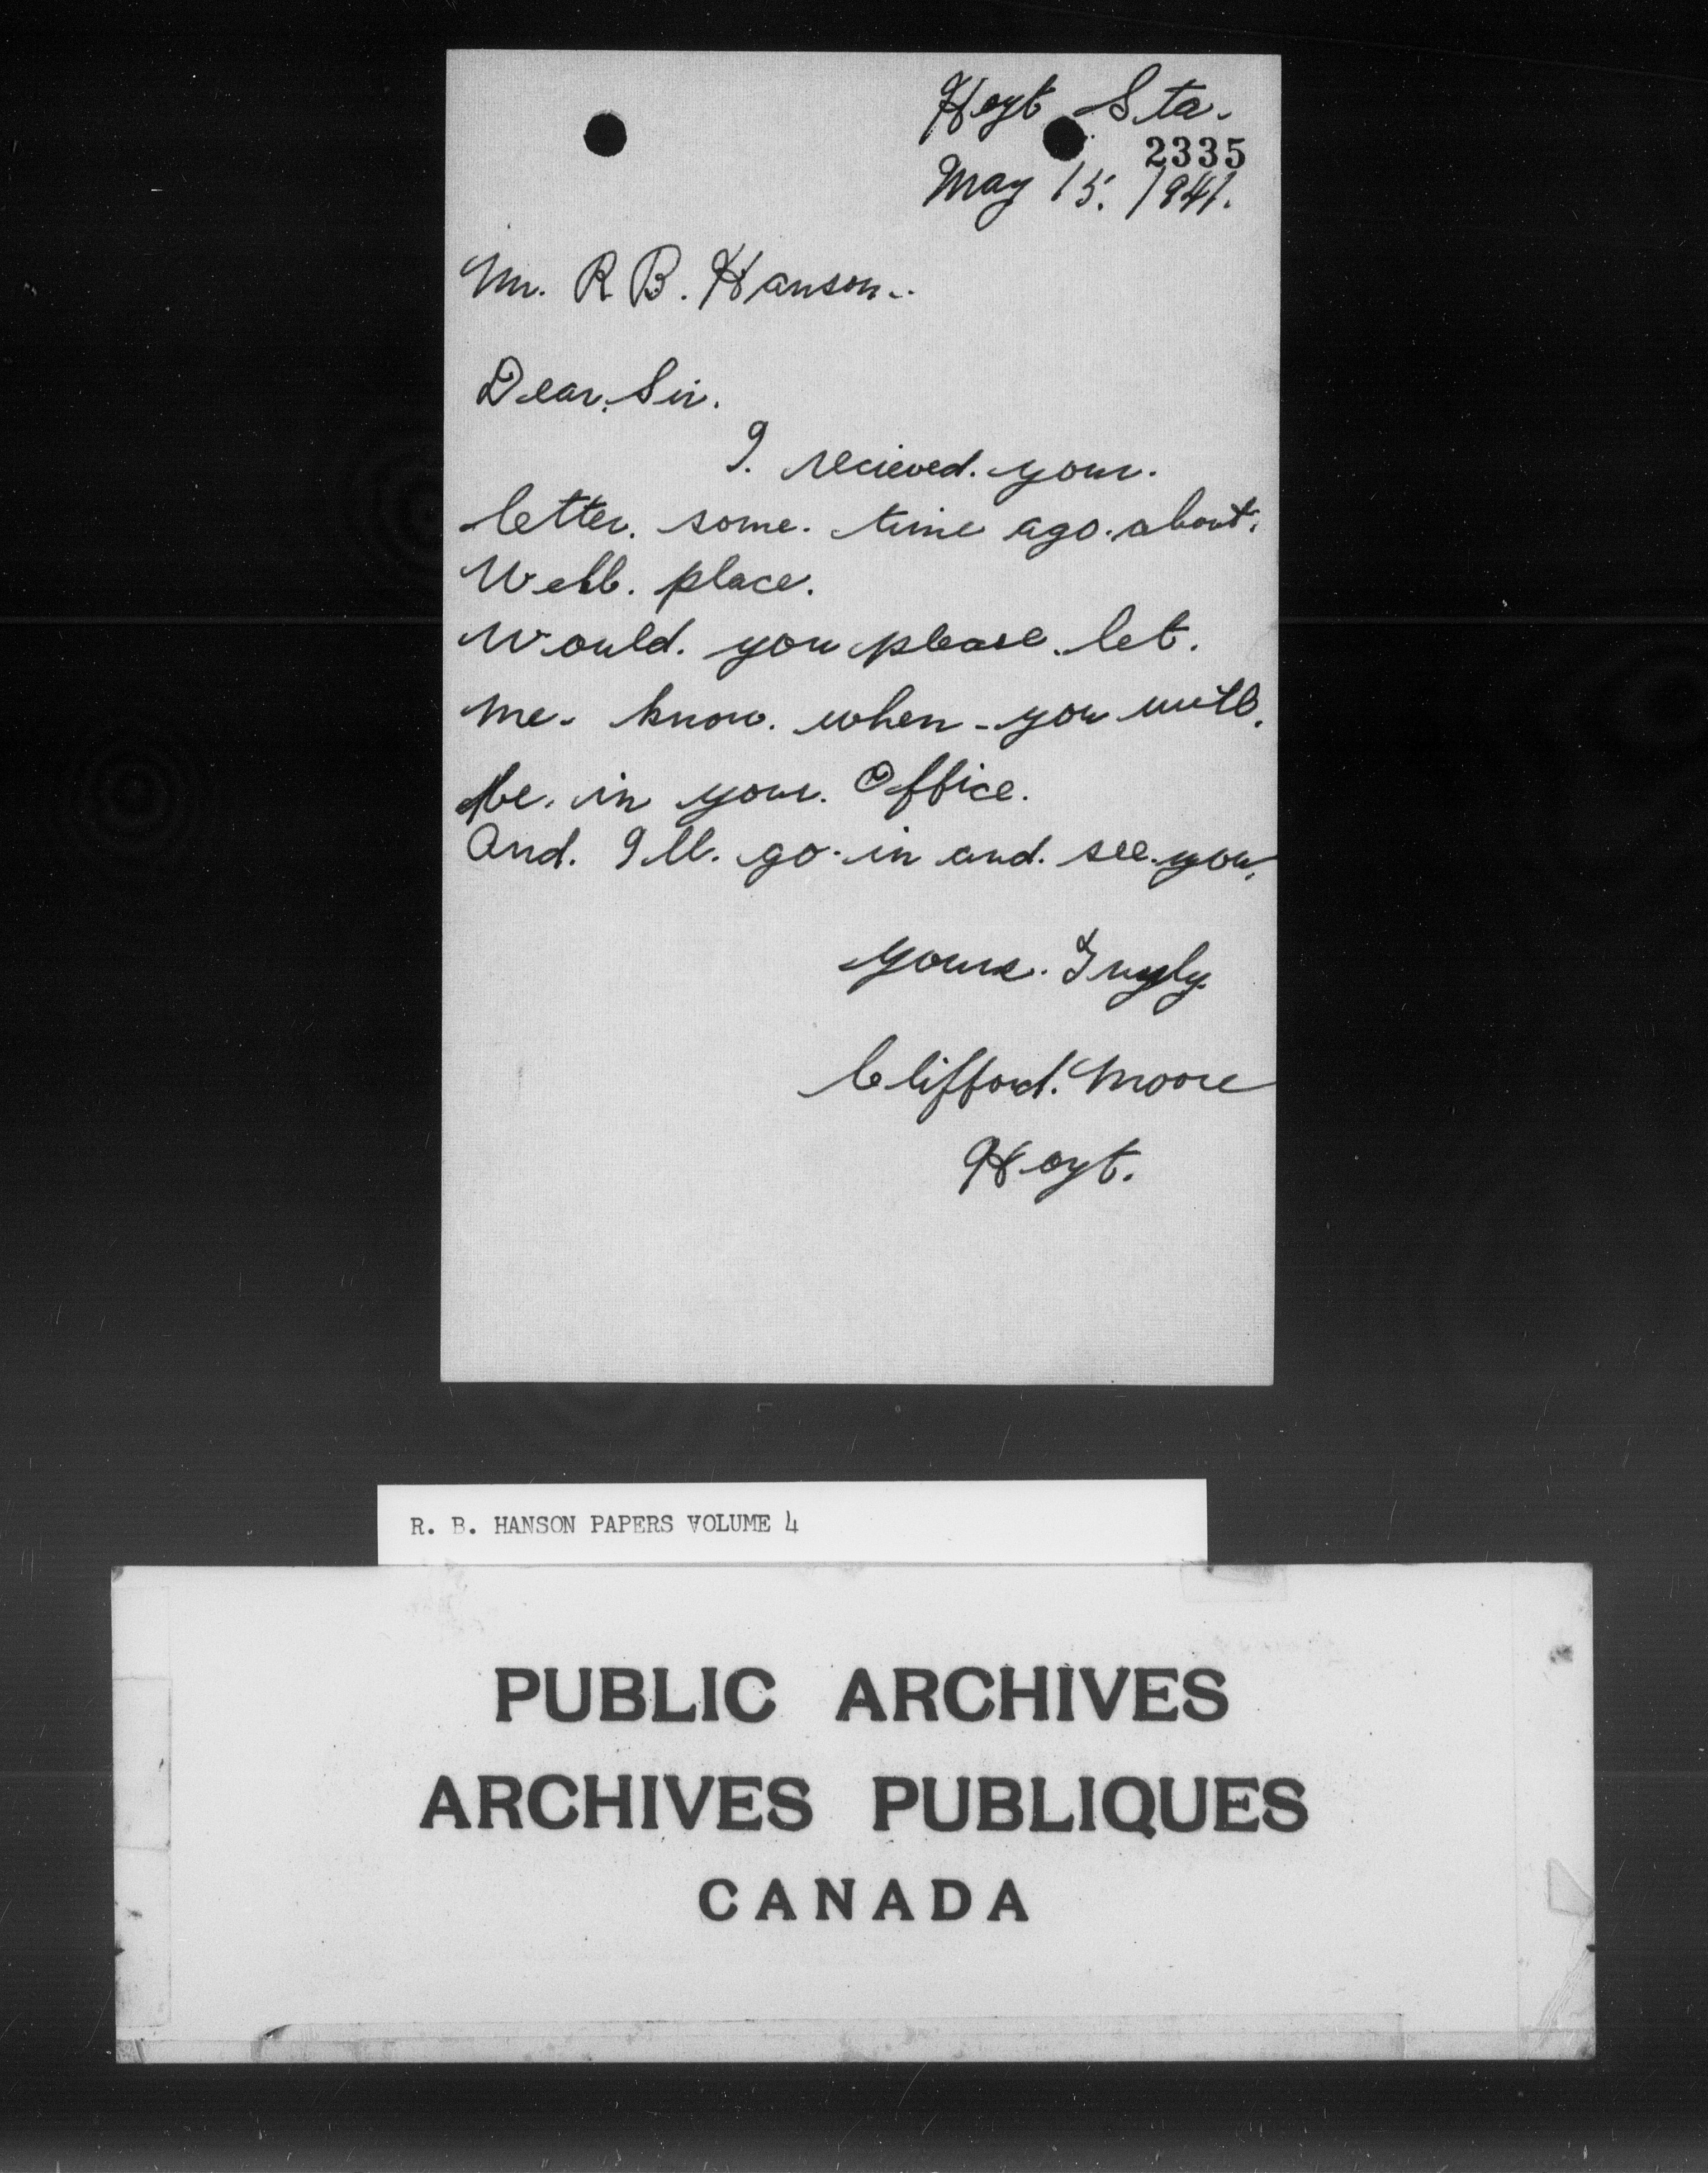 Hoyt Sta.
2335
May 15. 1941.
Mr. R. B. Hanson..
Dear. Sir.
I. recieved. your.
letter. some. time ago. about.
Webb. place.
Would. you please. let.
me. know. when - you will.
be. in your. Office.
And. I'll. go. in and. see. you.
Yours. Truly.
Clifford. Moore
Hoyt.
R. B. HANSON PAPERS VOLUME 4
PUBLIC ARCHIVES
ARCHIVES PUBLIQUES
CANADA